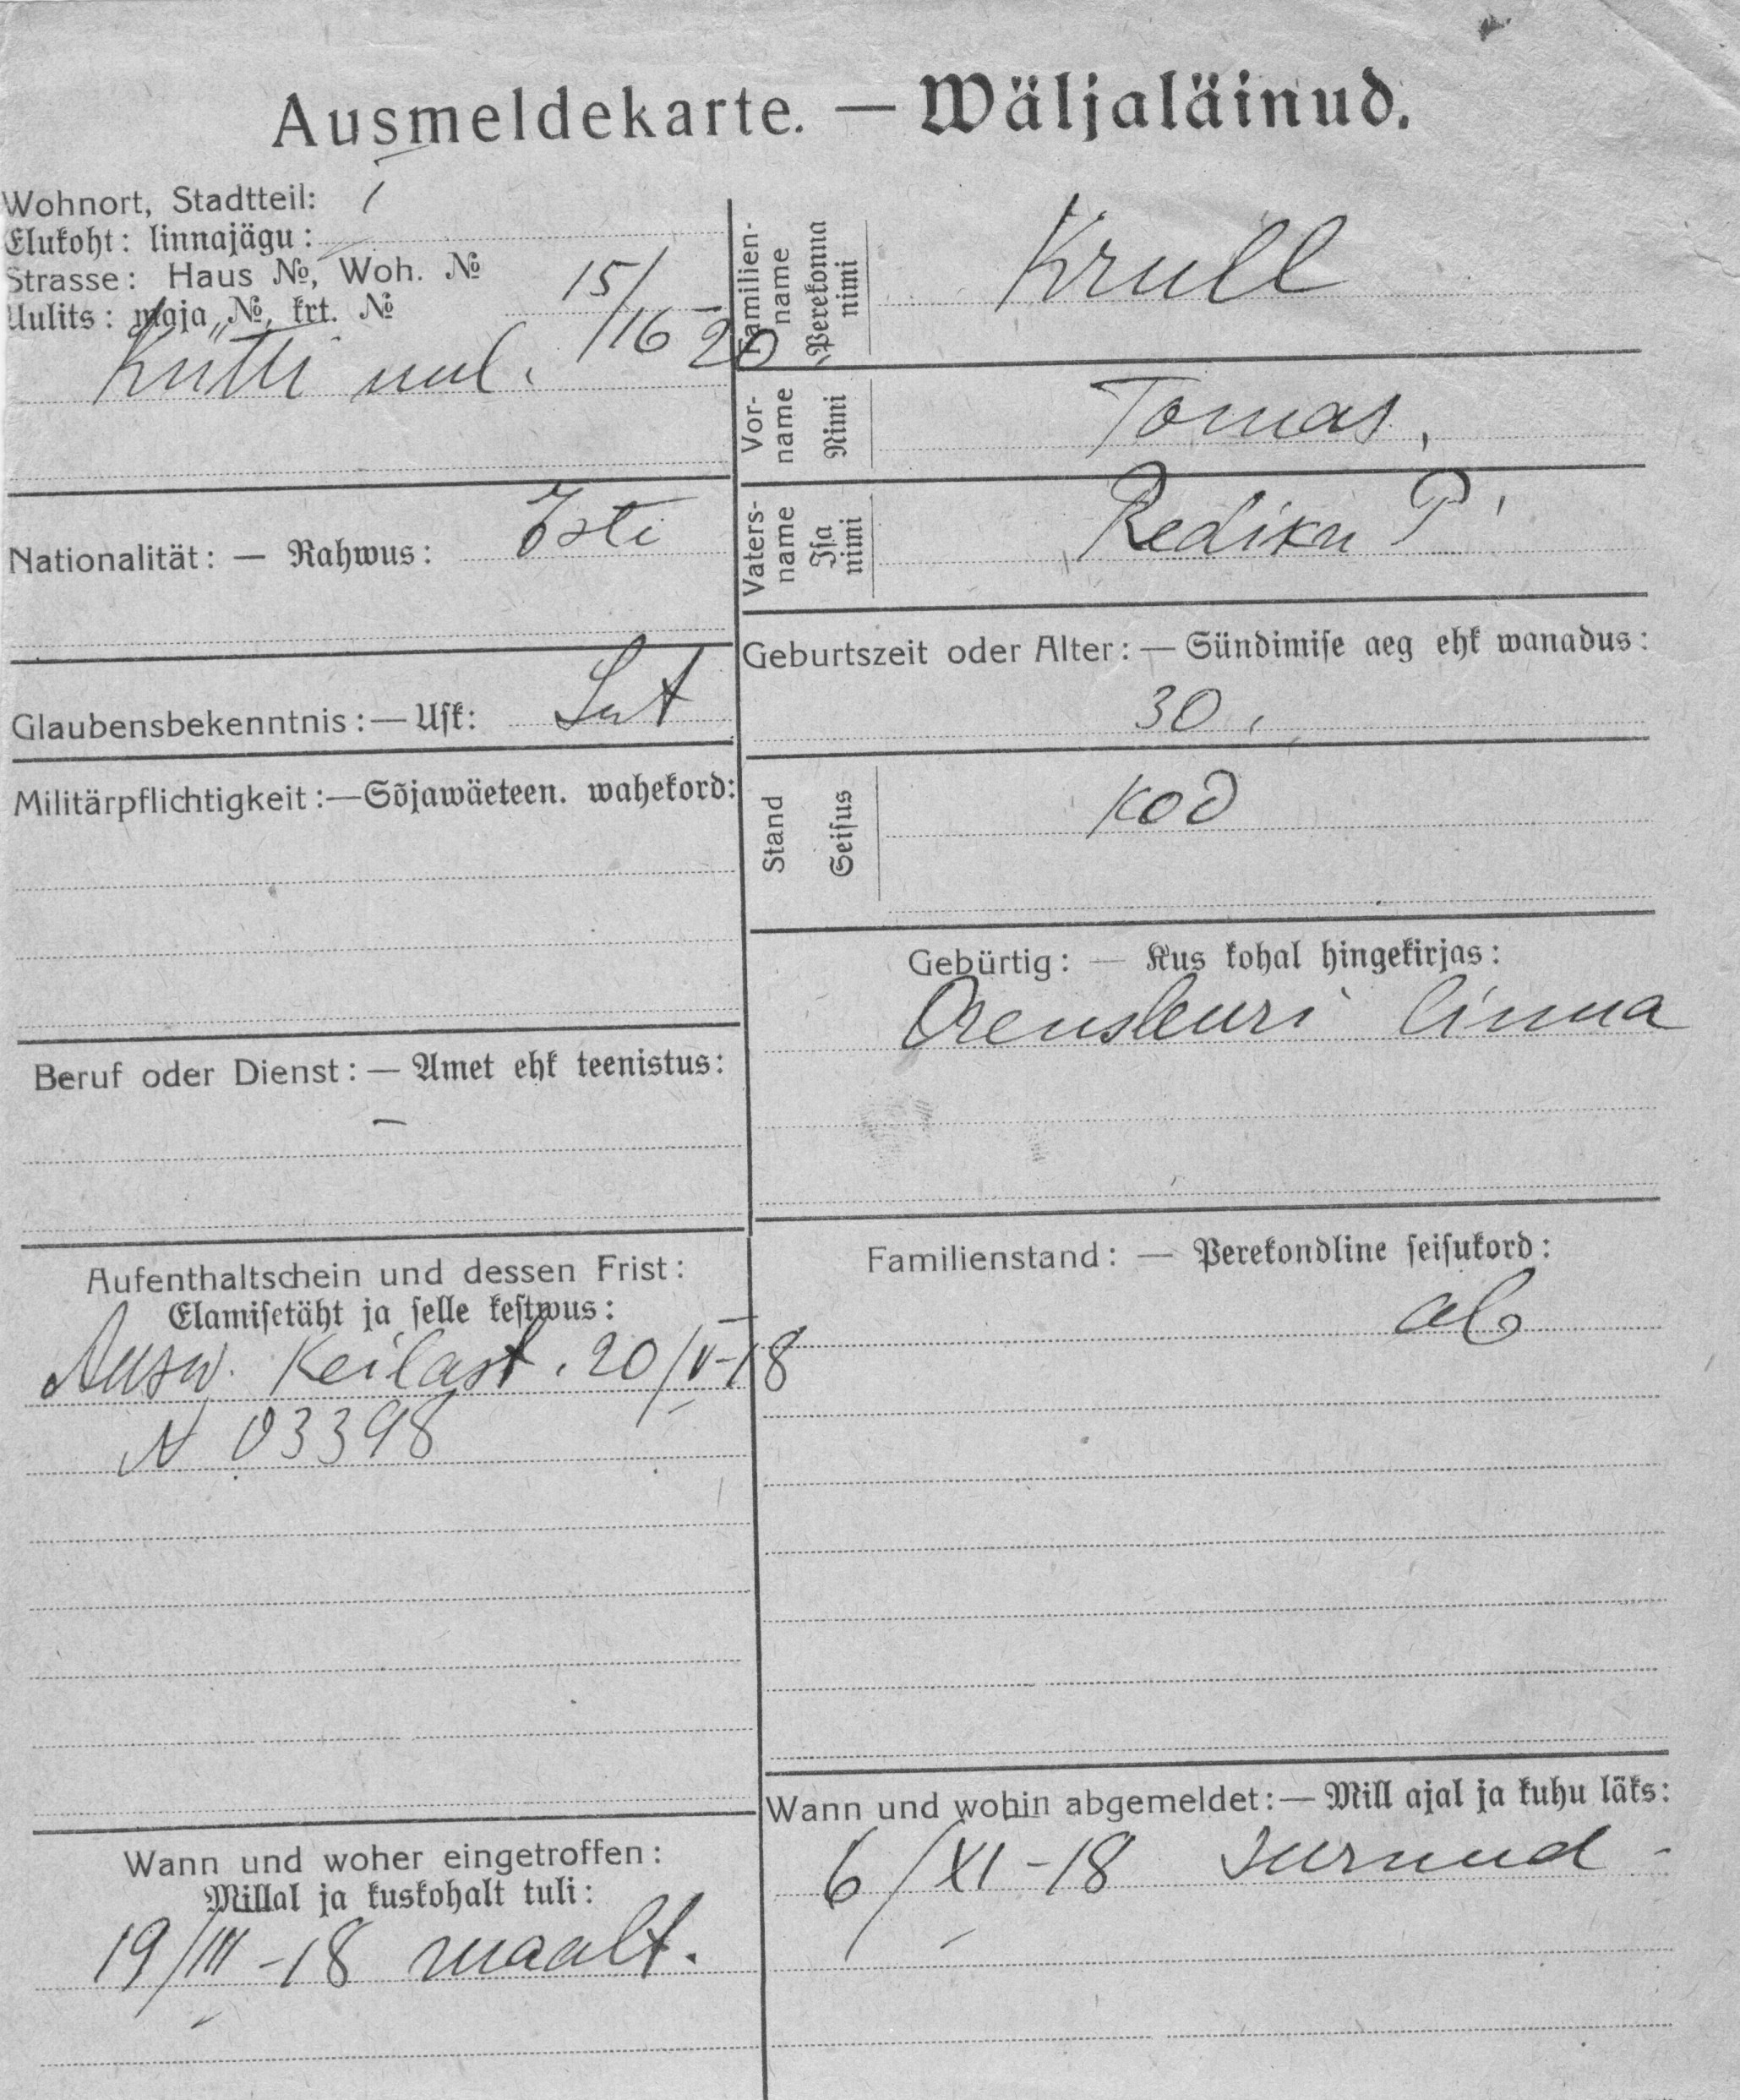 Ausmeldekarte. — Wäljaläinud.
Wohnort, Stadtteil: I
Elukoht: linnajägu:
Strasse: Haus №, Woh. №
Uulits: maja №, krt. №
15/16-20
Kütti uul.
Nationalität: — Rahwus: Esti
Glaubensbekenntnis: — Usk: Lut
Militärpflichtigkeit: — Sõjawäeteen. wahekord:
Beruf oder Dienst: — Amet ehk teenistus:
—
Aufenthaltschein und dessen Frist:
Elamisetäht ja selle kestwus:
Ausw. Keilast. 20/V-18
N 03398
Wann und woher eingetroffen:
Millal ja kuskohalt tuli:
19/III-18 maalt.
Familien-
name
Perekonna
nimi
Krull
Vor-
name
Nimi
Tomas,
Vaters-
name
Isa
nimi
Rediku P.
Geburtszeit oder Alter: — Sündimise aeg ehk wanadus:
30.
Stand
Seisus
kod
Gebürtig: — Kus kohal hingekirjas:
Orensburi linna
Familienstand: — Perekondline seisukord:
ab
Wann und wohin abgemeldet: — Mill ajal ja kuhu läks:
6/XI-18 surnud -